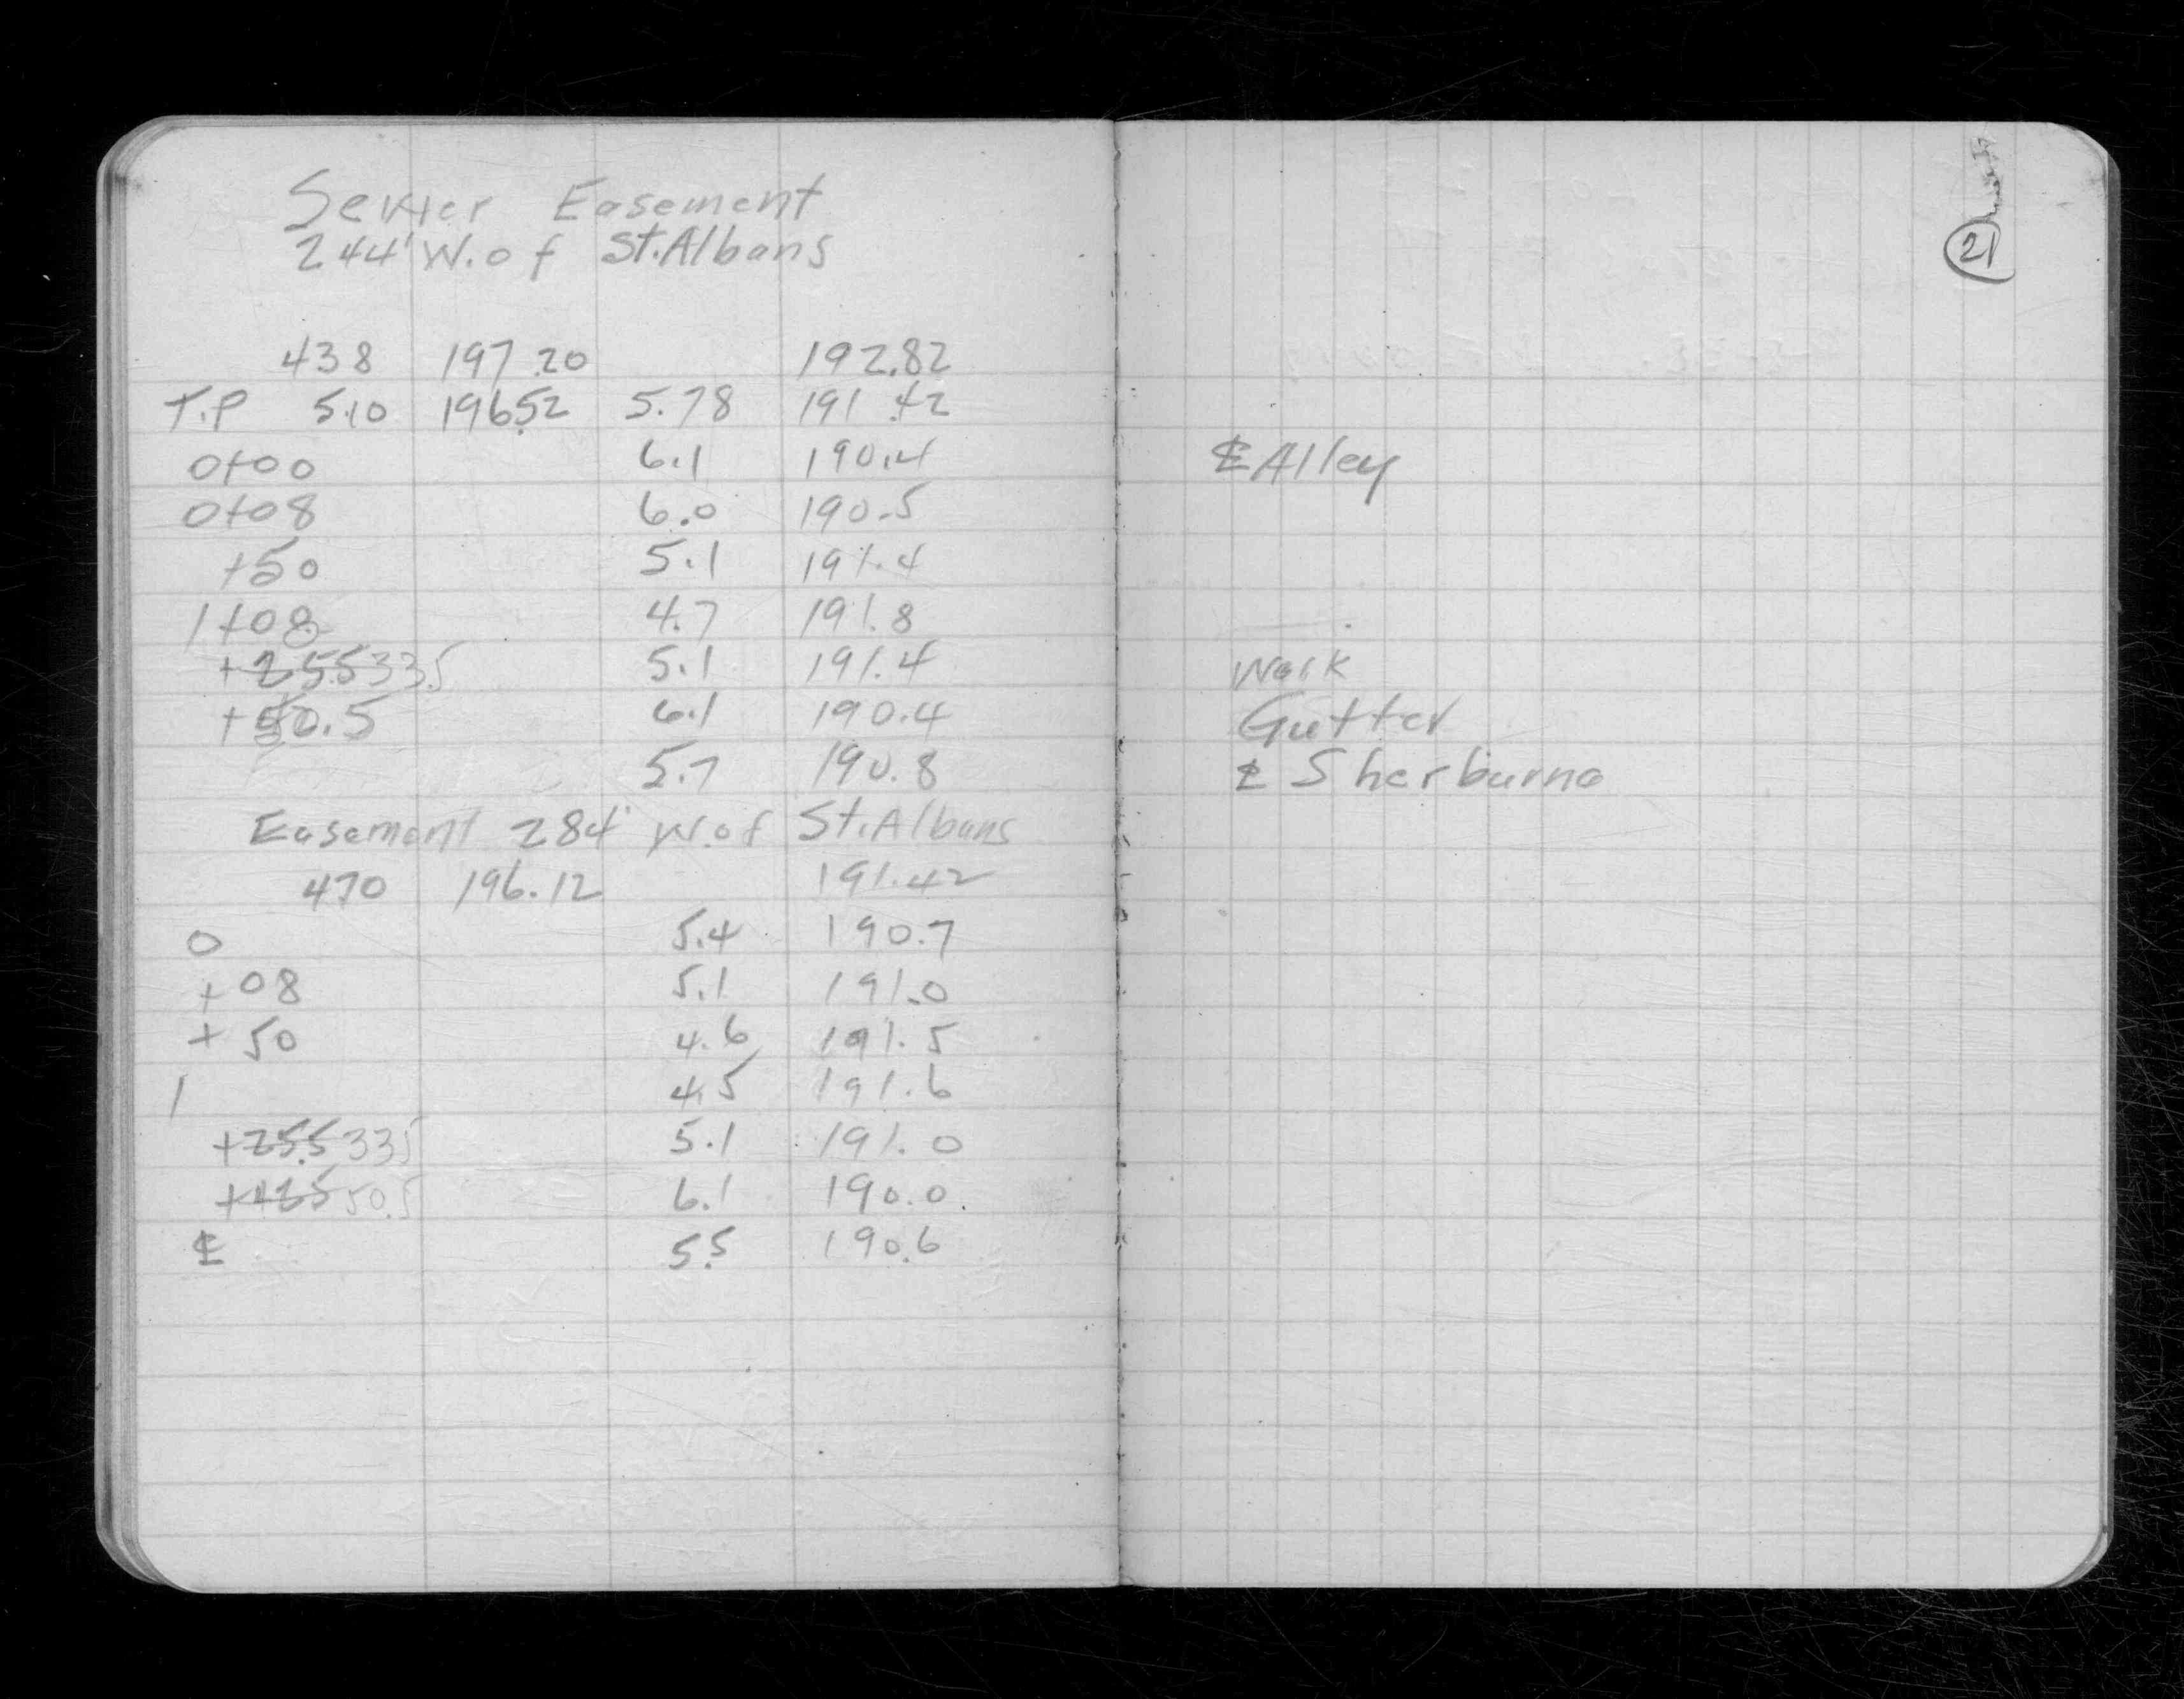 Sewer Easement
244' W. of St. Albans
438 197.20 192.82
T.P 5.10 196.52 5.78 191.42
0+00 6.1 190.4 ℄ Alley
0+08 6.0 190.5
+50 5.1 191.4
1+08 4.7 191.8
+25.5 33.5 5.1 191.4 Walk
+50.5 6.1 190.4 Gutter
5.7 190.8 ℄ Sherburne
Easement 284' W. of St. Albans
470 196.12 191.42
0 5.4 190.7
+08 5.1 191.0
+50 4.6 191.5
1 4.5 191.6
+25.5 335 5.1 191.0
+425 50.5 6.1 190.0
℄ 5.5 190.6
21